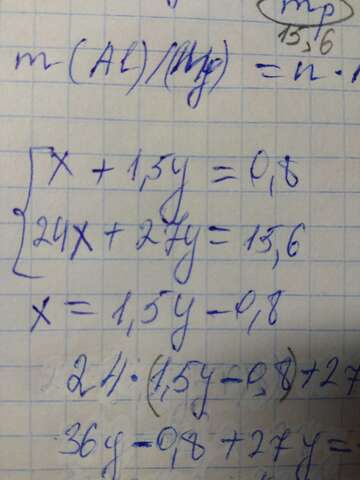 mp
15,6
m(Al)/(Mg) = n ·
x + 1,5y = 0,8
24x + 27y = 15,6
x = 1,5y - 0,8
24 · (1,5y - 0,8) + 27
36y - 0,8 + 27y =